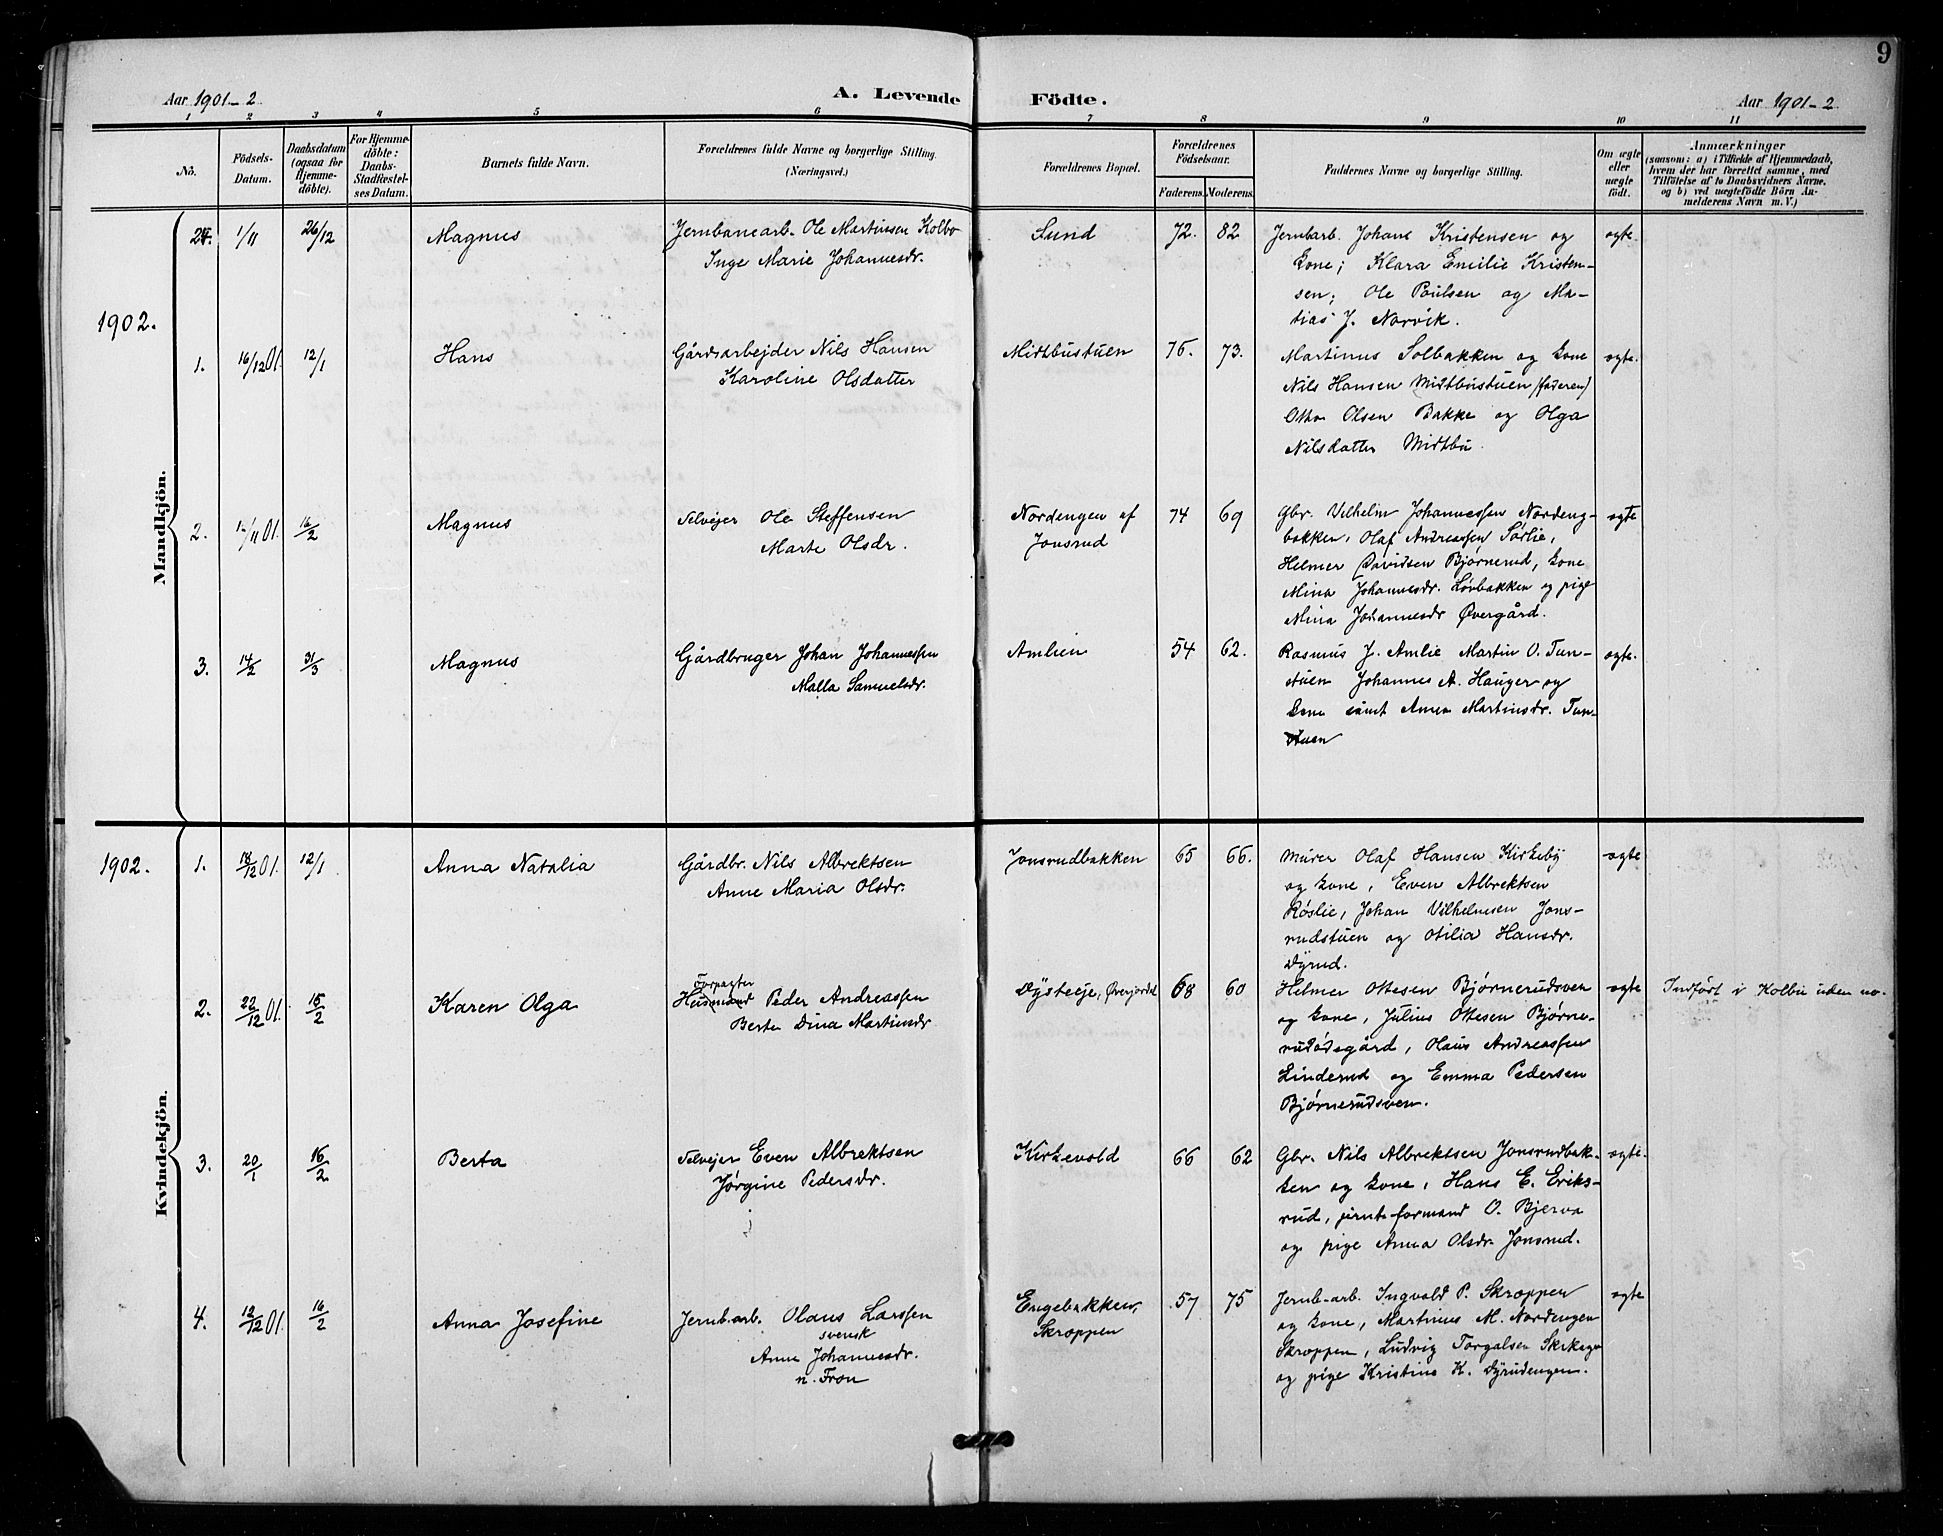 9
Aar 1901-2
A. Levende Födte.
Aar 1901-2
1 2 3 4 5 6 7 8 9 10 11
No.
Födsels-Datum.
Daabsdatum (ogsaa for Hjemme-döbte).
For Hjemme-döbte: Daabs-Stadfæstel-ses Datum.
Barnets fulde Navn.
Forældrenes fulde Navne og borgerlige Stilling. (Næringsvei.)
Forældrenes Bopæl.
Forældrenes Födselsaar.
Faderens. Moderens.
Faddernes Navne og borgerlige Stilling.
Om ægte eller uægte födt.
Anmærkninger
(saasom: a) i Tilfælde af Hjemmedaab, hvem der har forrettet samme, med Tilföielse af to Daabsvidners Navne, og b) ved uægtefödte Börn Anmelderens Navn m. V.)
Mandkjön.
24. 1/11 26/12 Magnus
Jernbanearb. Ole Martinsen Kolbo
Inge Marie Johannesdr.
Sund 72. 82
Jernbarb. Johane Kristensen og
kone; Klara Emilie Kristen-
sen; Ole Poulsen og Ma-
tias J. Narvik.
ægte.
1902.
1. 16/12 01. 12/1 Hans
Gårdsarbejder Nils Hansen
Karoline Olsdatter
Midtbustuen 75. 73.
Martinus Solbakken og kone
Nils Hansen Midtbustuen (faderen)
Otto Olsen Bakke og Olga
Nilsdatter Midtbu.
ægte.
2. /11 01. 16/2 Magnus
Selvejer Ole Steffensen
Marte Olsdr.
Nordengen af
Jonsrud
74 69
Gbr. Vilhelm Johannessen Nordeng-
bakken, Olaf Andreassen Sørlie,
Helmer Davidsen Bjørnerud, kone
Mina Johannesdr. Løvbakken og pige
Mina Johannesdr Øvergård.
ægte
3. 14/2 31/3 Magnus
Gårdbruger Johan Johannessen
Malla Samuelsdr.
Amlien 54 62.
Rasmus J. Amlie Martin O. Tun-
stuen Johannes A. Hauger og
kone samt Anna Martinsdr. Tun-
stuen
ægte.
Kvindekjön.
1902. 1. 18/12 01. 12/1 Anna Natalia
Gårdbr. Nils Albrektsen
Anne Maria Olsdr.
Jonsrudbakken 65 66.
Murer Olaf Hansen Kirkeby
og kone, Even Albrektsen
Røslie, Johan Vilhelmsen Jons-
rudstuen og Otilia Hansdr.
Dyrud.
ægte
2. 22/12 01. 15/2 Karen Olga
Forpagter
Husmand Peder Andreassen
Berte Dina Martinsdr
Dysteeje, Øverjordet 68 60
Helmer Ottesen Bjørnerudsven
og kone, Julius Ottesen Bjørne-
rudødegård, Olaus Andreassen
Linderud og Emma Pedersen
Bjørnerudsven.
ægte
Indført i Kolbu uden no.
3. 20/1 16/2 Berta
Selvejer Even Albrektsen
Jørgine Pedersdr.
Kirkevold 66 62
Gbr. Nils Albrektsen Jonsrudbak-
ken og kone, Hans E. Eriks-
rud, jernb.formand O. Bjerva
og pige Anna Olsdr. Jonsrud.
ægte.
4. 12/12 01. 16/2 Anna Josefine
Jernb.arb. Olaus Larssen
svensk
Anne Johannesdr.
n. Fron
Engebakken,
Skroppen
57 75
Jernb-arb. Ingvold P. Skroppen
og kone, Martinus M. Nordengen
Skroppen, Ludvig Torgalsen
og pige Kristine K. Dyrudengen.
ægte